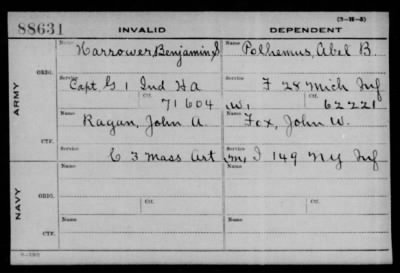 (3-H-5)
88631 INVALID DEPENDENT
Name Harrower, Benjamin S Name Polhemus, Abel B.
ARMY
ORIG. Service Capt. G 1 Ind Ha Service F 28 Mich Inf
Ctf. 71604 W, Ctf. 62221
Name Ragan, John A. Name Fox, John W.
CTF. Service C 3 Mass Art Service M, I 149 NY Inf
NAVY
Name Name
ORIG. Service Ctf. Service Ctf.
Name Name
CTF. Service Service